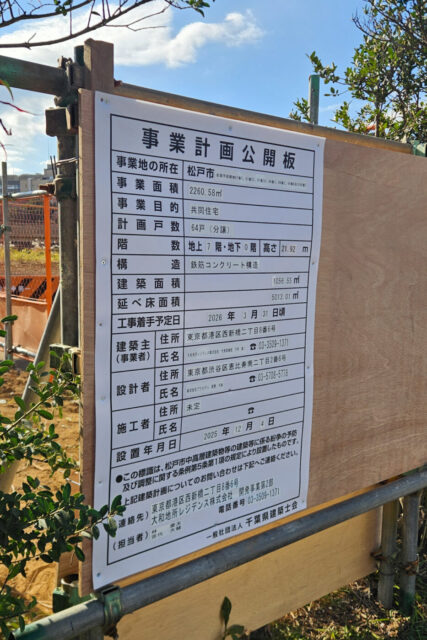 事業計画公開板
事業地の所在 松戸市
事業面積 2260.58㎡
事業目的 共同住宅
計画戸数 64戸（分譲）
階数 地上7階・地下0階 高さ 21.92 m
構造 鉄筋コンクリート構造
建築面積 1056.55㎡
延べ床面積 5013.01㎡
工事着手予定日 2026年3月31日頃
建築主（事業者） 住所 東京都港区西新橋二丁目8番6号
氏名 ☎03-3509-1371
設計者 住所 東京都渋谷区恵比寿南二丁目3番6号
氏名 ☎03-5708-5778
施工者 住所 未定
氏名 ☎
設置年月日 2025年12月4日
●この標識は、松戸市中高層建築物等の建築等に係る紛争の予防
及び調整に関する条例第5条第1項の規定により設置したものです。
上記建築計画についてのお問い合わせは下記へご連絡ください。
連絡先） 東京都港区西新橋二丁目8番6号
大和地所レジデンス株式会社 開発事業第2部
（担当者） 電話番号 03-3509-1371
一般社団法人 千葉県建築士会